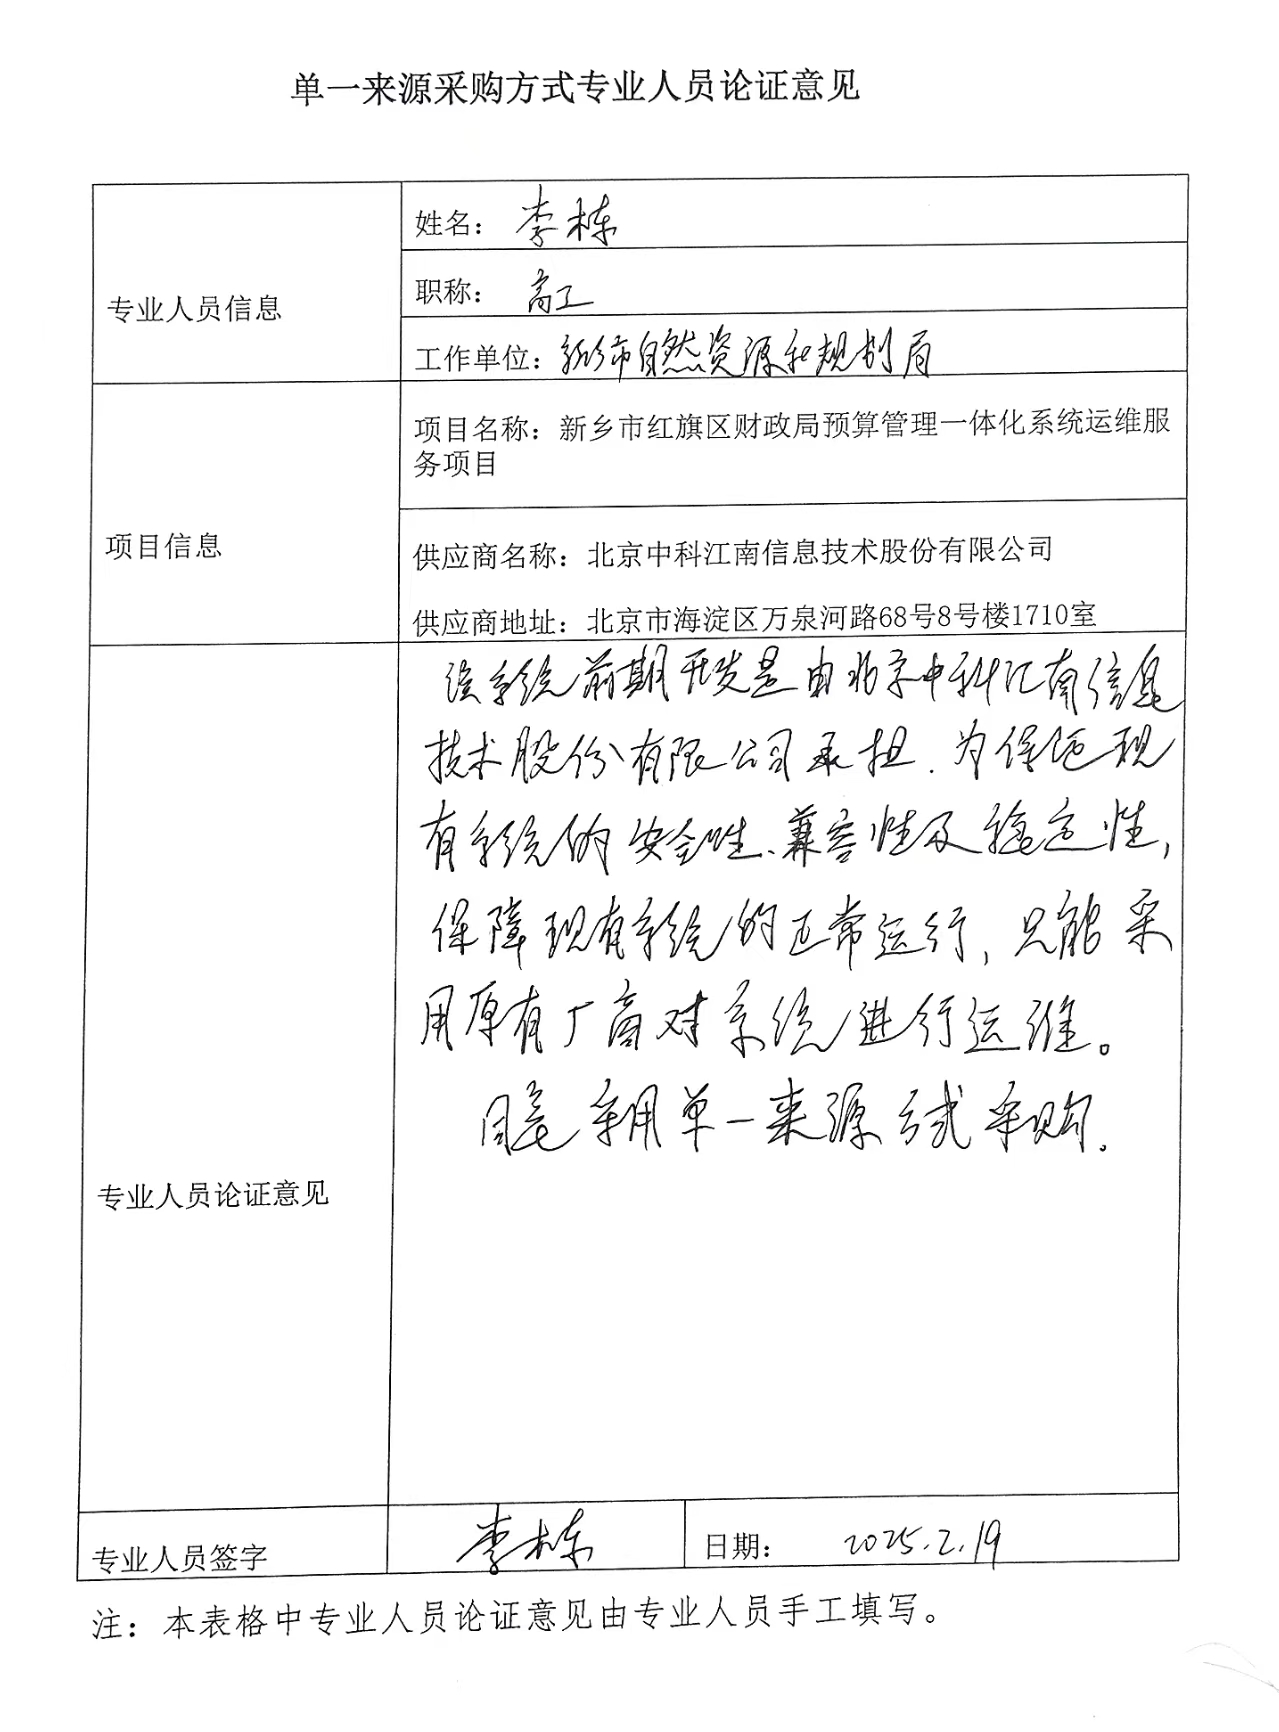 单一来源采购方式专业人员论证意见
专业人员信息
姓名：李栋
职称：高工
工作单位：新乡市自然资源和规划局
项目信息
项目名称：新乡市红旗区财政局预算管理一体化系统运维服
务项目
供应商名称：北京中科江南信息技术股份有限公司
供应商地址：北京市海淀区万泉河路68号8号楼1710室
专业人员论证意见
该系统前期开发是由北京中科江南信息
技术股份有限公司承担.为保证现
有系统的安全性、兼容性及稳定性，
保障现有系统的正常运行，只能采
用原有厂商对系统进行运维。
同意采用单一来源方式采购.
专业人员签字
李栋
日期：2025.2.19
注：本表格中专业人员论证意见由专业人员手工填写。